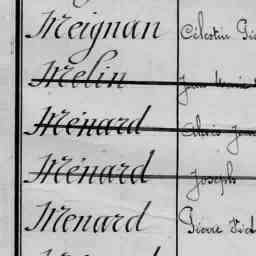 Meignan Célestin
Melin Jean Marie
Ménard Alexis
Ménard Joseph
Menard Pierre